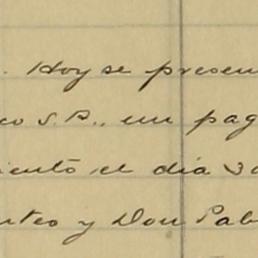 . Hoy se presen
co S.A., un pag
iento el dia 30
nteo y Don Pab